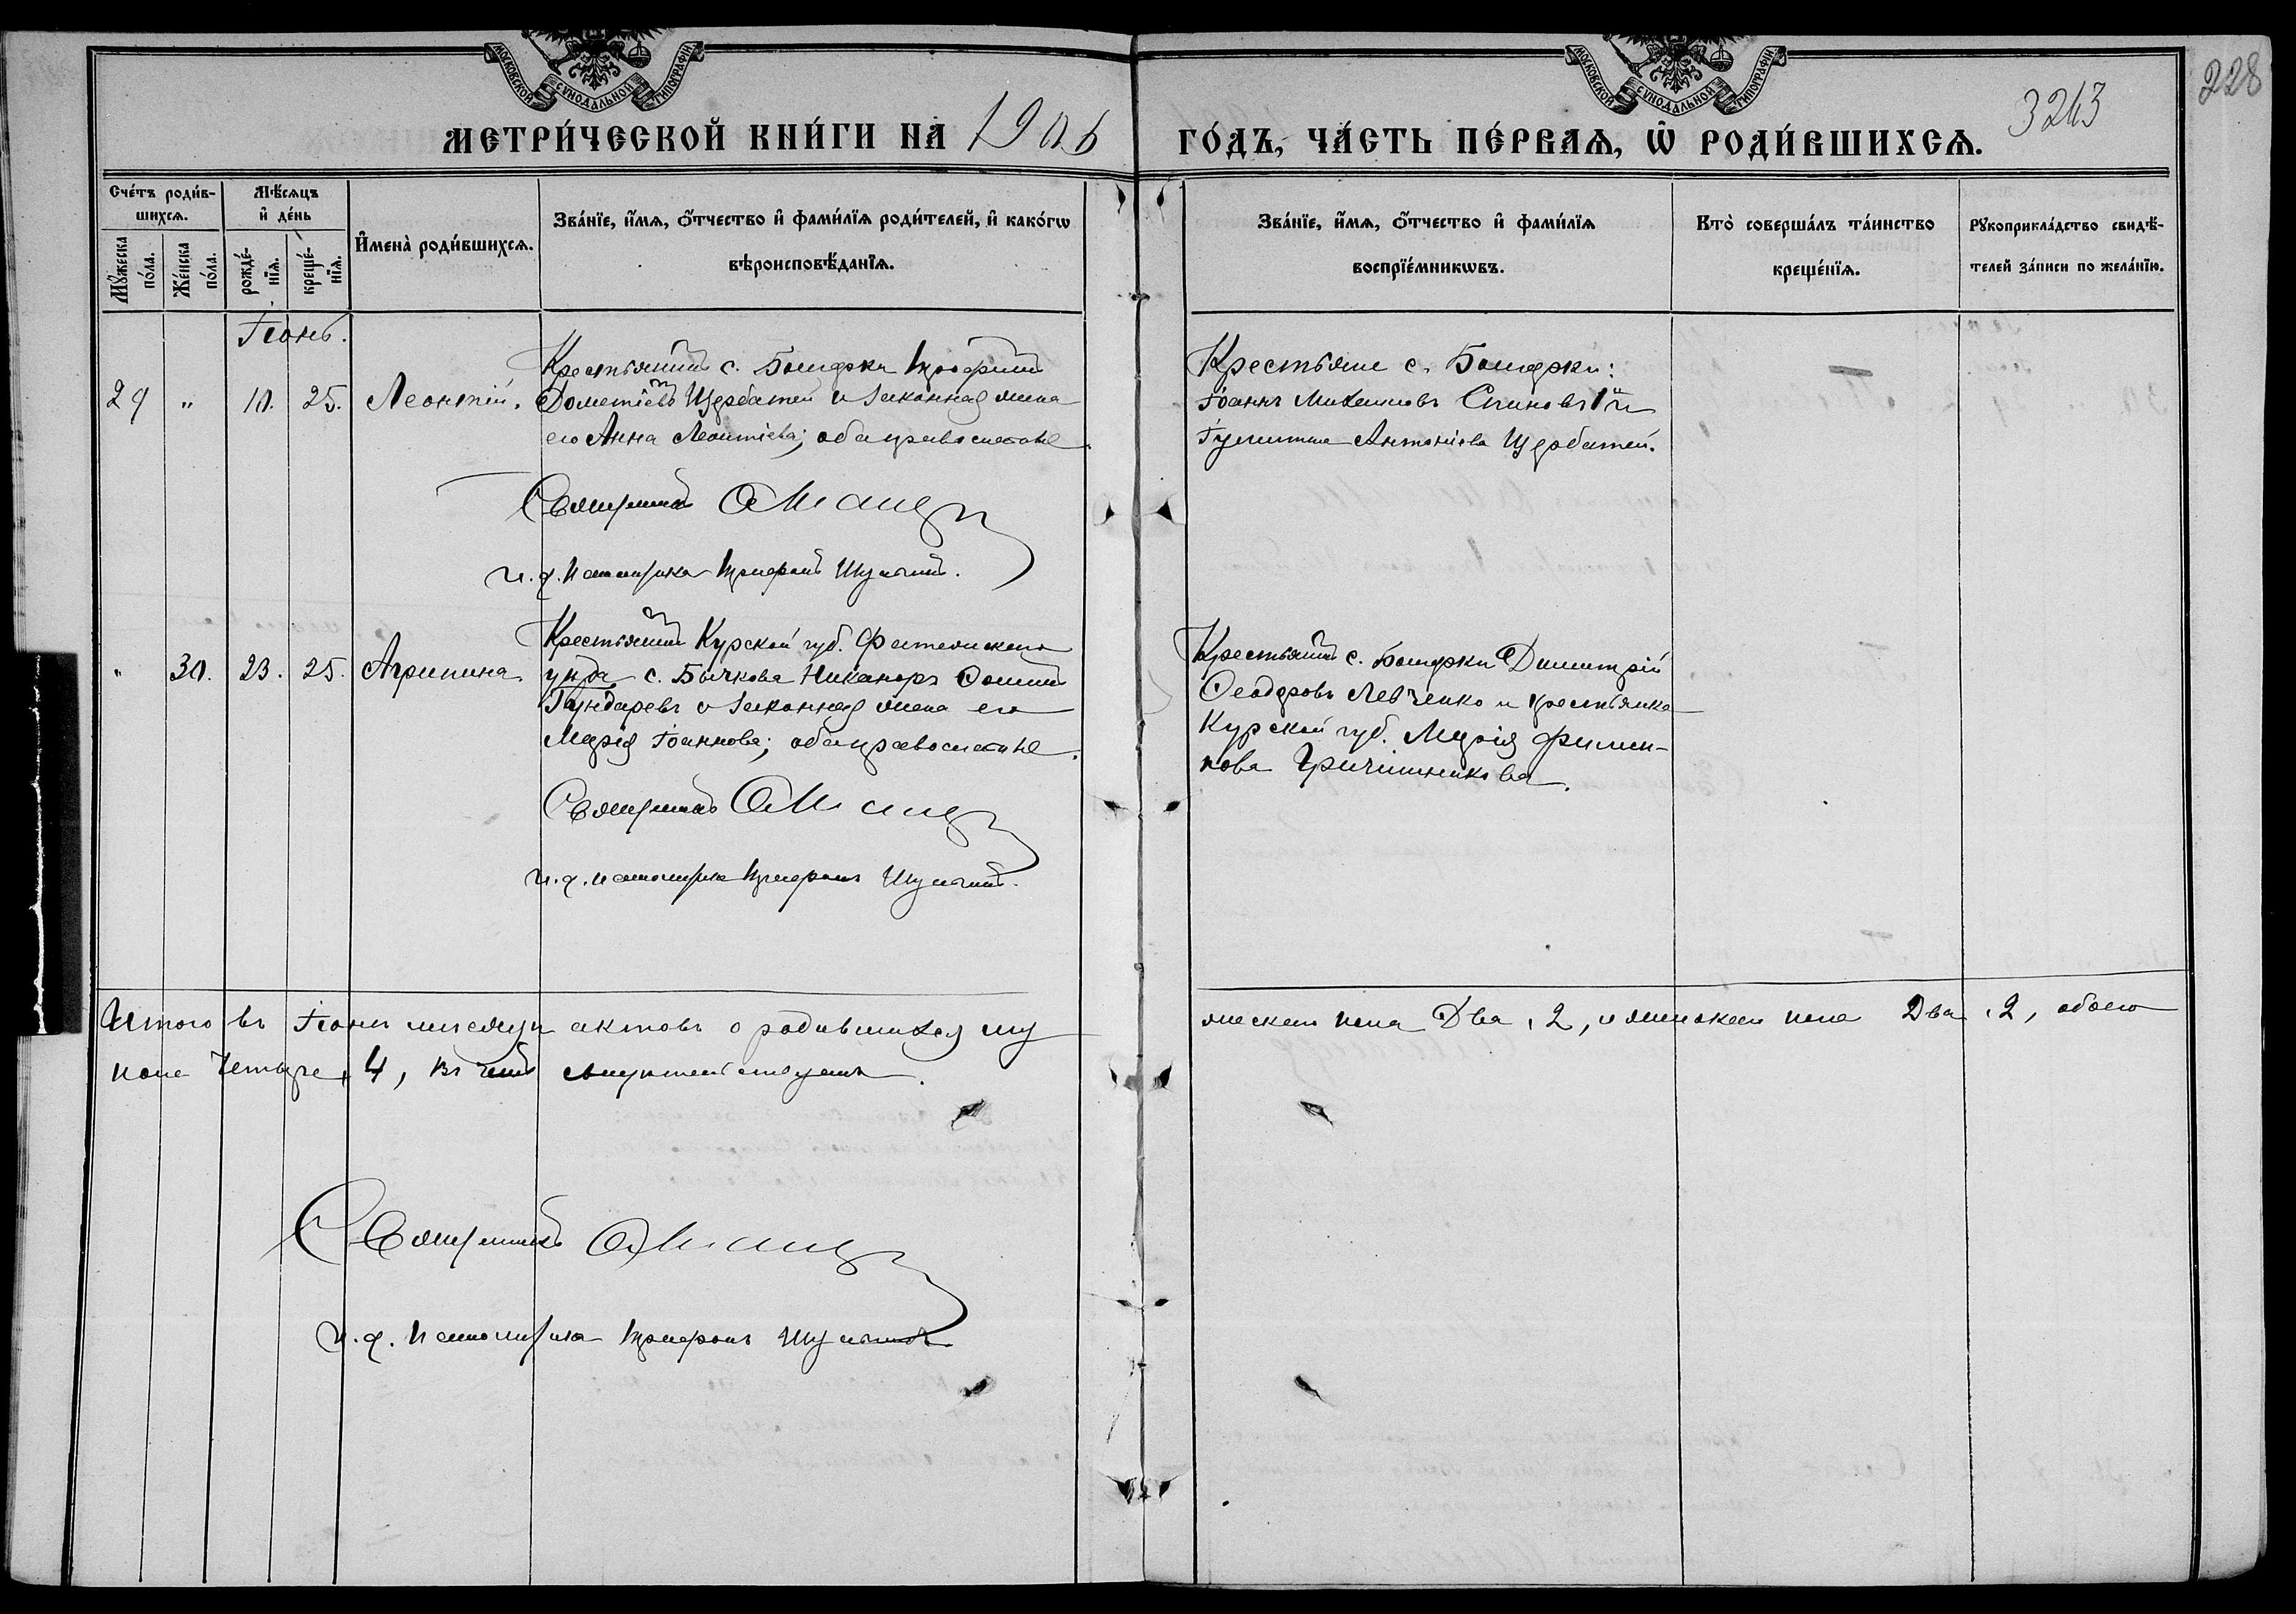 МОСКОВСКОЙ СѴНОДАЛЬНОЙ ТИПОГРАФІИ
МОСКОВСКОЙ СѴНОДАЛЬНОЙ ТИПОГРАФІИ
228
3243
МЕТРИ́ЧЕСКОЙ КНИ́ГИ НА 1906 ГО́ДЪ, ЧА́СТЬ ПЕ́РВАѦ, Ѡ҆ РОДИ́ВШИХСѦ.
Сче́тъ роди́в-
шихсѧ.
Мꙋ́жеска
по́ла.
Же́нска
по́ла.
Мѣ́сѧцъ
и҆ де́нь
рожде́-
нїѧ.
креще́-
нїѧ.
И҆мена̀ роди́вшихсѧ.
Зва́нїе, и҆́мѧ, ѻ҆́тчество и҆ фами́лїѧ роди́телей, и҆ како́гѡ
вѣроисповѣ́данїѧ.
Зва́нїе, и҆́мѧ, ѻ҆́тчество и҆ фами́лїѧ
воспрїе́мникѡвъ.
Кто̀ соверша́лъ та́инство
креще́нїѧ.
Рꙋкоприкла́дство свидѣ́-
телей за́писи по жела́нїю.
Іюнь.
29 " 10. 25. Леонтій.
Крестьянинъ с.
Дометіевъ Щербатей и законная жена
его Анна Леонтіева; оба православные.
Священникъ
и. д. псаломщика
Крестьяне с.
Іоаннъ Михаиловъ
Антоніева Щербатей.
" 30. 23. 25. Агрипина.
Крестьянинъ Курской губ. Фатежскаго
уѣзда с. Бычкова Никаноръ
Гундаревъ и законная жена его
Марія Іоаннова; оба православные.
Священникъ
и. д. псаломщика
Крестьянинъ с. Димитрій
Ѳеодоровъ Левченко и крестьянка
Курской губ. Марія Филип-
пова
Итого въ Іюнѣ мѣсяцѣ актовъ о родившихся му
жескаго пола Два, 2, и женскаго пола Два, 2, обоего
пола Четыре, 4, въ чемъ свидѣтельствуемъ.
Священникъ
и. д. псаломщика